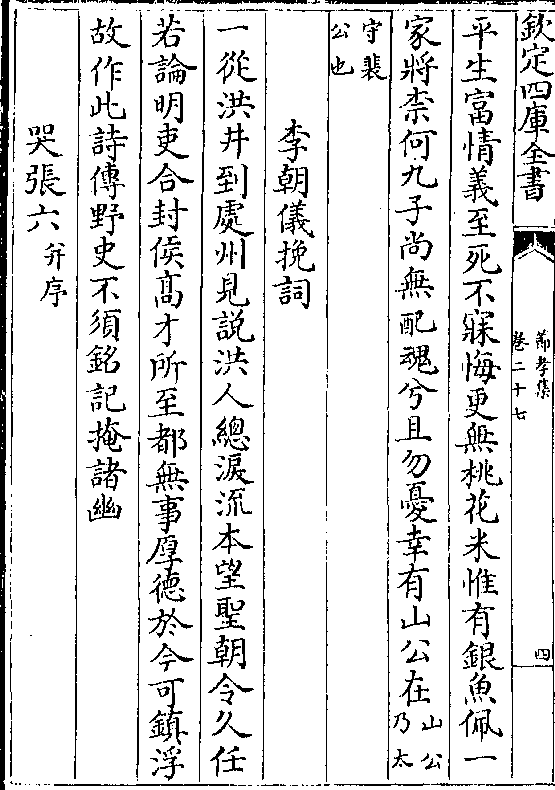 欽定四庫全書
節孝集
卷二十七
四
平生富情義至死不寐悔更無桃花米惟有銀魚佩一
家將柰何九子尚無配魂兮且勿憂幸有山公在山公乃太
守裴公也
李朝儀挽詞
一從洪井到處州見説洪人總淚流本望聖朝令久任
若論明吏合封侯髙才所至都無事厚德於今可鎮浮
故作此詩傳野史不須銘記掩諸幽
哭張六并序